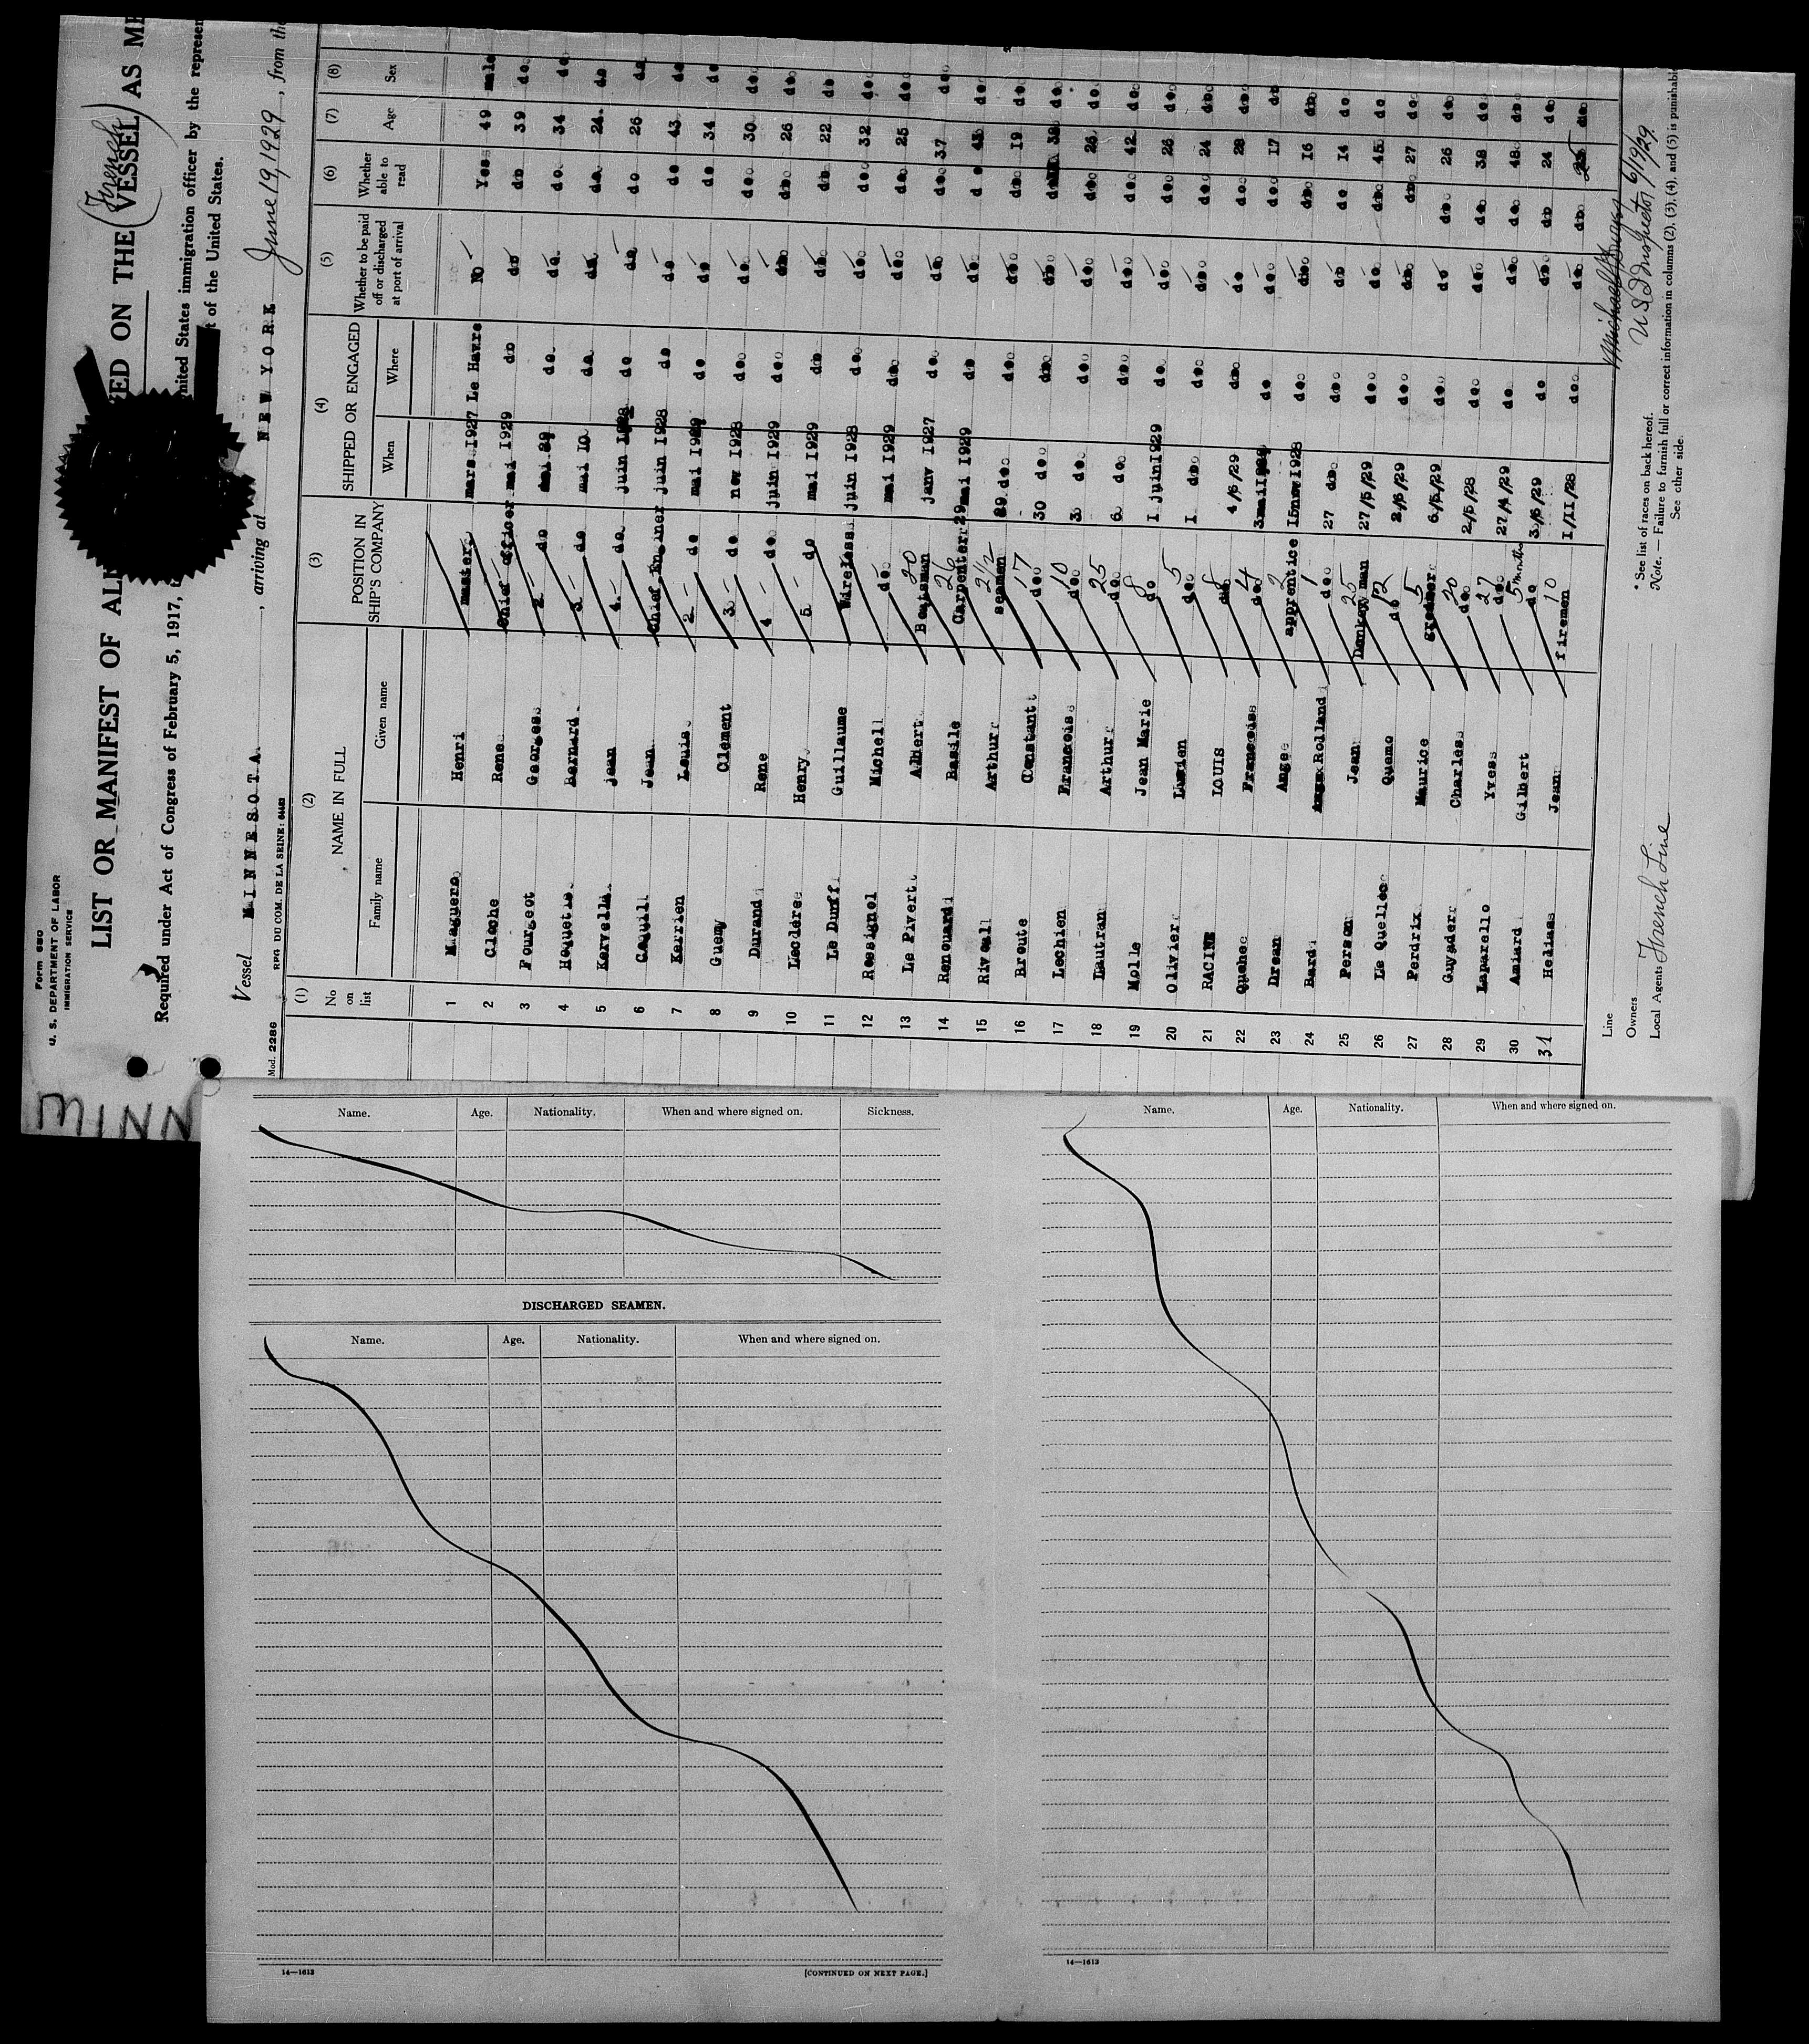 Form 680
U. S. DEPARTMENT OF LABOR
IMMIGRATION SERVICE
LIST OR MANIFEST OF ALI ED ON THE (French) VESSEL AS ME
Required under Act of Congress of February 5, 1917, nited States immigration officer by the represen
t of the United States.
Vessel MINNESOTA. , arriving at NEW YORK June 19, 1929 , from the
Mod. 2286 RFG DU COM. DE LA SEINE:
(1) (2) (3) (4) (5) (6) (7) (8)
No on list NAME IN FULL POSITION IN SHIP'S COMPANY SHIPPED OR ENGAGED Whether to be paid off or discharged at port of arrival Whether able to read Age Sex
Family name Given name When Where
1 Henri master mars 1927 Le Havre NO Yes 49 male
2 Cloche Rene Chief officer mai 1929 do do 39 do
3 Fourgeot Georges 2 do do do do 34 do
4 Bernard 3 do mai 10 do do do 24 do
5 Kervella jean 4 do juin do do do 26 do
6 Jean Chief juin 1928 do do do 43 do
7 Kerrien Louis 2 do mai do do do 34 do
8 Guemy Clement 3 do nov 1928 do do do 30 do
9 Durand Rene 4 do juin 1929 do do do 26 do
10 Leclere Henry 5 do mai 1929 do do do 22 do
11 Le Duff Guillaume Wireless juin 1928 do do do 32 do
12 Rossignol Michell do mai 1929 do do do 25 do
13 Le Pivert Albert 20 janv 1927 do do do 37 do
14 Renouard Basile 26 Carpenter 29 mai 1929 do do do 43 do
15 Rivoall Arthur 2 1/2 seamen 29 do do do do 19 do
16 Broute Constant 17 do 30 do do do do 38 do
17 Lechien Francois 10 do 3 do do do do 26 do
18 Dautran Arthur 25 do 6 do do do do 42 do
19 Molle Jean Marie 8 do 1 juin 1929 do do do 26 do
20 Olivier Lucien 5 do 1 do do do do 24 do
21 RACINE LOUIS 8 do 4/6/29 do do do 28 do
22 Quehec Francois 4 do 3 mai do do do 17 do
23 Drean Ange 2 apprentice 15 nov 1928 do do do 16 do
24 Bard Rolland 1 do 27 do do do do 14 do
25 Person Jean 25 Donkey man 27/5/29 do do do 45 do
26 Le Quellec Quemo 12 do 2/6/29 do do do 27 do
27 Perdrix Maurice 5 greaser 6/5/29 do do do 26 do
28 Guyader Charles 20 do 2/5/28 do do do 38 do
29 Laparello Yves 27 do 27/4/29 do do do 48 do
30 Amiard Gilbert 5 months do 3/6/29 do do do 24 do
31 Helias Jean 10 firemen 1/11/28 do do do 25 do
Line
Owners
Local Agents French Line
6/19/29
U S Inspector
* See list of races on back hereof.
Note. — Failure to furnish full or correct information in columns (2), (3), (4), and (5) is punishabl
See other side.
MINN
Name. Age. Nationality. When and where signed on. Sickness.
DISCHARGED SEAMEN.
Name. Age. Nationality. When and where signed on.
14—1613 [CONTINUED ON NEXT PAGE.]
Name. Age. Nationality. When and where signed on.
14—1613